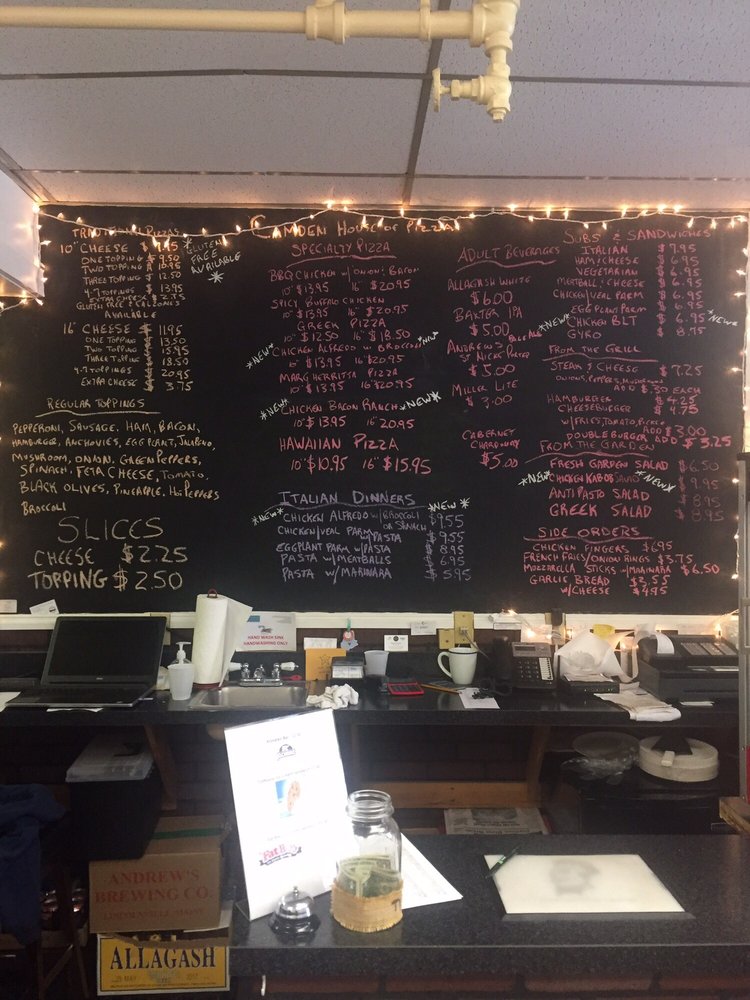 CAMDEN HOUSE OF PIZZA
TRADITIONAL PIZZAS
10" CHEESE
ONE TOPPING $9.50
TWO TOPPING $10.95
THREE TOPPING $12.50
4-7 TOPPINGS $13.95
EXTRA CHEESE $2.75
GLUTEN FREE & CALZONES
AVAILABLE
*GLUTEN
FREE
AVAILABLE
*
16" CHEESE $11.95
ONE TOPPING $13.50
TWO TOPPING $15.95
THREE TOPPING $18.50
4-7 TOPPINGS $20.95
EXTRA CHEESE $3.75
REGULAR TOPPINGS
PEPPERONI, SAUSAGE, HAM, BACON,
HAMBURGER, ANCHOVIES, EGGPLANT, JALAPENO,
MUSHROOM, ONION, GREEN PEPPERS,
SPINACH, FETA CHEESE, TOMATO,
BLACK OLIVES, PINEAPPLE, HOT PEPPERS
BROCCOLI
SLICES
CHEESE $2.25
TOPPING $2.50
SPECIALTY PIZZA
BBQ CHICKEN W/ ONION & BACON
10" $13.95 16" $20.95
SPICY BUFFALO CHICKEN
10" $13.95 16" $20.95
GREEK PIZZA
10" $12.50 16" $18.50
*NEW* CHICKEN ALFREDO W/ BROCCOLI *NEW*
10" $13.95 16" $20.95
MARGHERITTA PIZZA
10" $13.95 16" $20.95
*NEW* CHICKEN BACON RANCH *NEW*
10" $13.95 16" 20.95
HAWAIIAN PIZZA
10" $10.95 16" $15.95
ITALIAN DINNERS
*NEW* CHICKEN ALFREDO W/ BROCCOLI OR SPINACH $9.55 *NEW*
CHICKEN/VEAL PARM W/PASTA $9.55
EGGPLANT PARM W/PASTA $8.95
PASTA W/ MEATBALLS $6.95
PASTA W/ MARINARA $5.95
ADULT BEVERAGES
ALLAGASH WHITE
$6.00
BAXTER IPA
$5.00
ANDREW'S PALE ALE
ST NICK PORTER
$5.00
MILLER LITE
$3.00
CABERNET
CHARDONNAY
$5.00
SUBS & SANDWICHES
ITALIAN $7.95
HAM & CHEESE $6.95
VEGETARIAN $6.95
MEATBALL & CHEESE $6.95
CHICKEN/VEAL PARM $6.95
EGGPLANT PARM $6.95
*NEW* CHICKEN BLT $6.95 *NEW*
GYRO $8.75
FROM THE GRILL
STEAK & CHEESE $7.25
ONIONS, PEPPERS, MUSHROOMS
ADD $.30 EACH
HAMBURGER $4.25
CHEESEBURGER $4.75
W/FRIES, TOMATO, PICKLE ADD $3.00
DOUBLE BURGER ADD $3.25
FROM THE GARDEN
FRESH GARDEN SALAD $6.50
*NEW* CHICKEN KABOB SALAD *NEW* $9.95
ANTIPASTO SALAD $8.95
GREEK SALAD $8.95
SIDE ORDERS
CHICKEN FINGERS $6.95
FRENCH FRIES/ONION RINGS $3.75
MOZZARELLA STICKS W/MARINARA $6.50
GARLIC BREAD $3.55
W/CHEESE $4.95
HAND WASH SINK
HANDWASHING ONLY
ANDREW'S
BREWING CO.
LINCOLNVILLE, MAINE
ALLAGASH